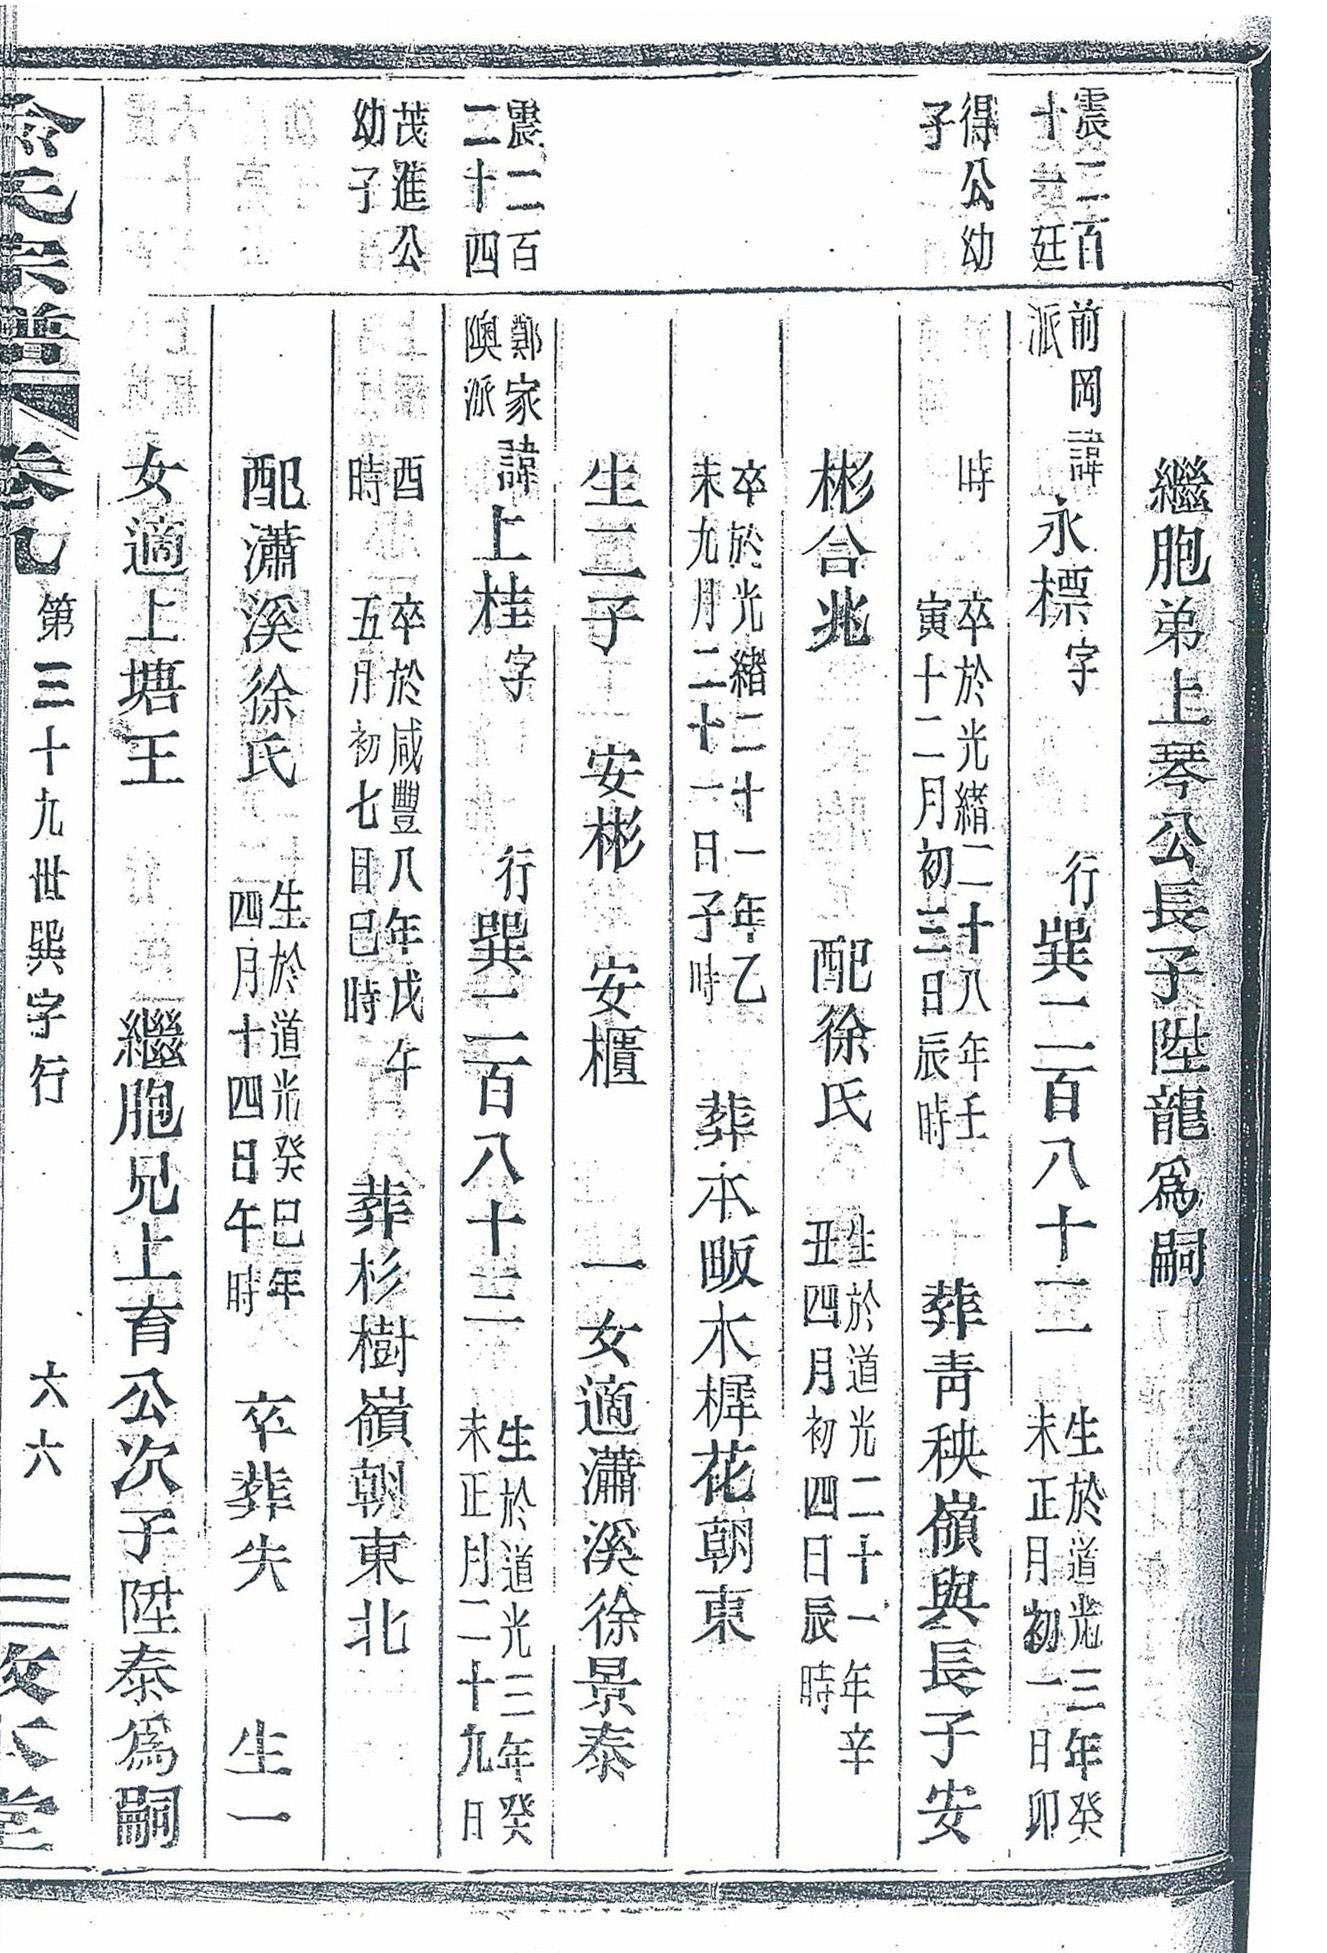 繼胞弟上琴公長子陞龍爲嗣
震二百
十一廷
前岡
派
諱永標字 行巽二百八十二
生於道光三年癸
未正月初一日卯
得公幼
子
時
卒於光緒二十八年壬
寅十二月初三日辰時
葬青秧嶺與長子安
彬合兆 配徐氏
生於道光二十一年辛
丑四月初四日辰時
卒於光緒二十一年乙
未九月二十一日子時
葬本畈木樨花朝東
生二子 安彬 安櫃 一女適瀟溪徐景泰
震二百
二十四
鄭家
隩派
諱上桂字 行巽二百八十三
生於道光三年癸
未正月二十九日
茂進公
幼子
酉
時
卒於咸豐八年戊午
五月初七日巳時
葬杉樹嶺朝東北
配瀟溪徐氏
生於道光癸巳年
四月十四日午時
卒葬失 生一
女適上塘王 繼胞兄上育公次子陞泰爲嗣
氏宗譜 卷九 第三十九世巽字行 六六 三